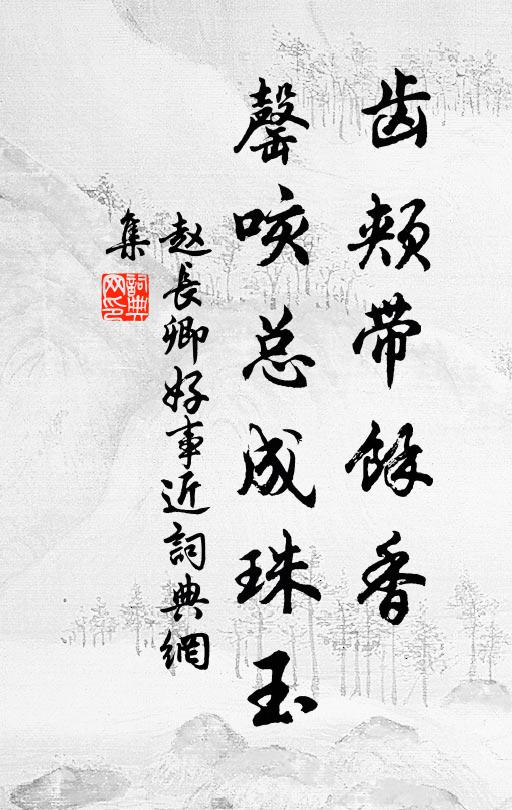 齿颊带馀香
罄咳总成珠玉
赵長卿好事近詞典網
集
詞典网印